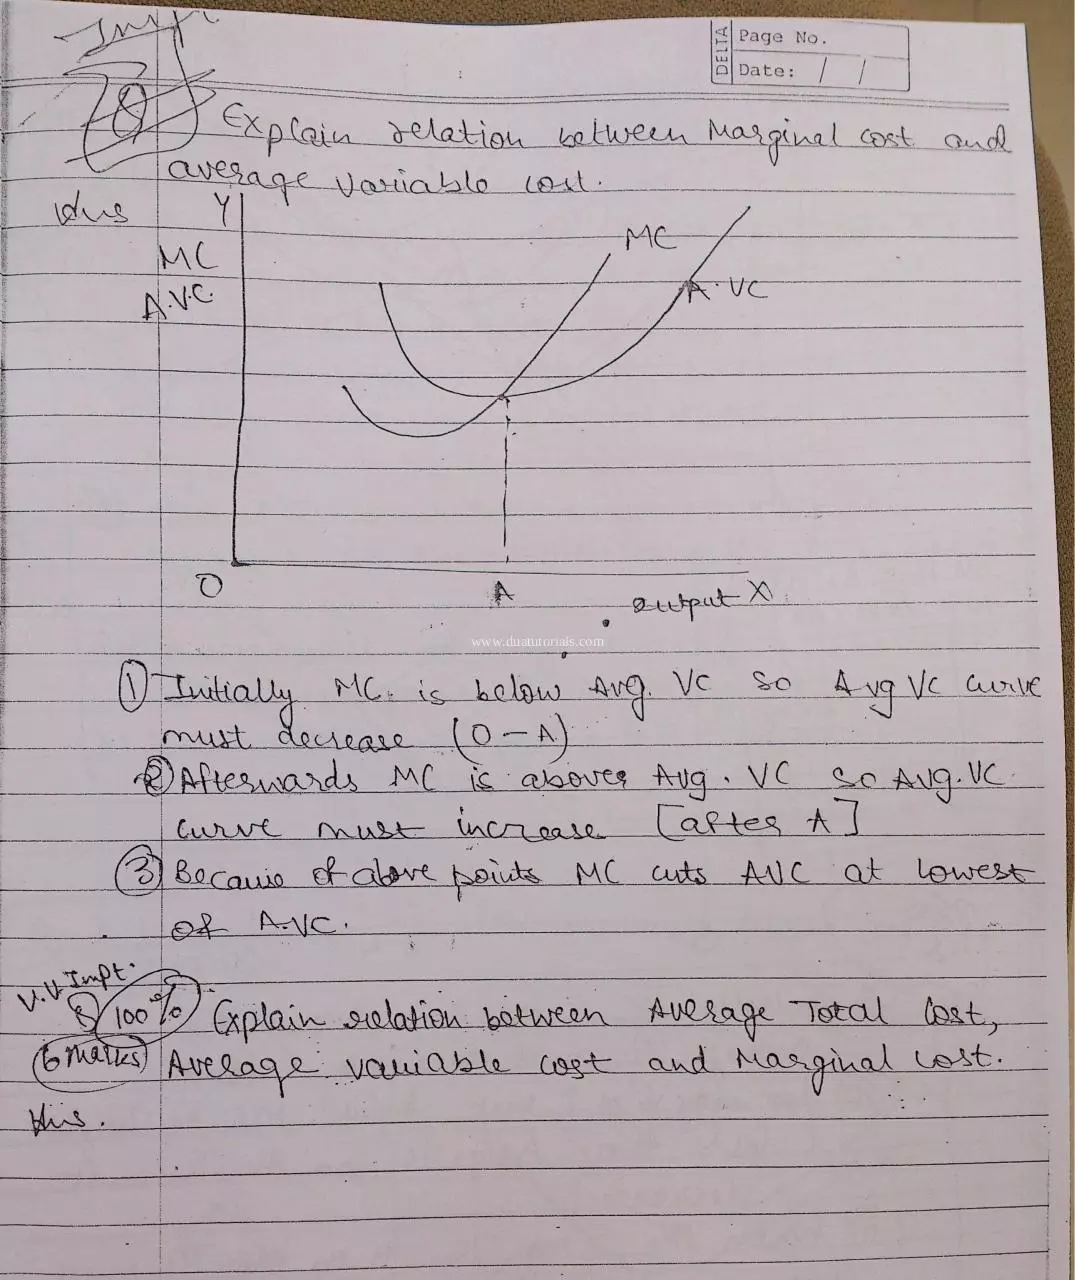 Impt
DELTA
Page No.
Date: / /
Explain relation between Marginal cost and
average variable cost.
Ans
Y
MC
A.V.C.
MC
A.VC
O
A
output X
www.duatutorials.com
① Initially MC. is below Avg. VC so Avg VC curve
must decrease (O-A)
② Afterwards MC is above Avg. VC so Avg.VC
curve must increase [after A]
③ Because of above points MC cuts AVC at lowest
of A.VC.
V.V.Impt.
100% Explain relation between Average Total Cost,
(6 marks) Average variable cost and Marginal cost.
Ans.